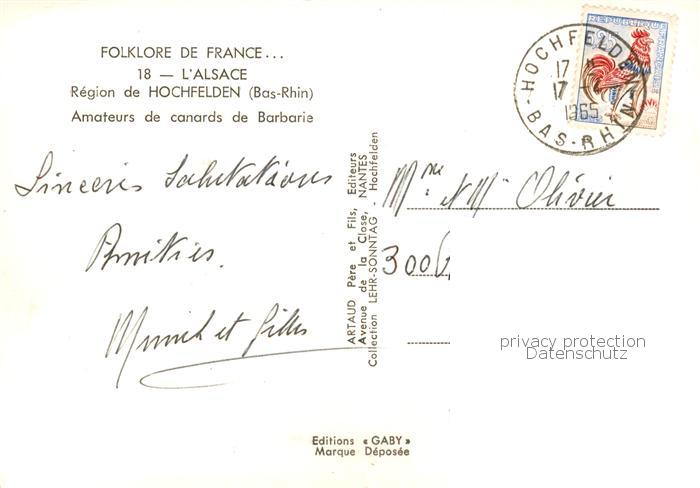 FOLKLORE DE FRANCE...
18 — L'ALSACE
Région de HOCHFELDEN (Bas-Rhin)
Amateurs de canards de Barbarie
Sincères Salutations
Amitiés.
et Gilles
ARTAUD Père et Fils, Editeurs
Avenue de la Close, NANTES
Collection LEHR-SONNTAG - Hochfelden
REPUBLIQUE FRANCAISE
HOCHFELDEN
17
17 -
1965
BAS-RHIN
Mme et Mr Olivier
3006
privacy protection
Datenschutz
Editions « GABY »
Marque Déposée